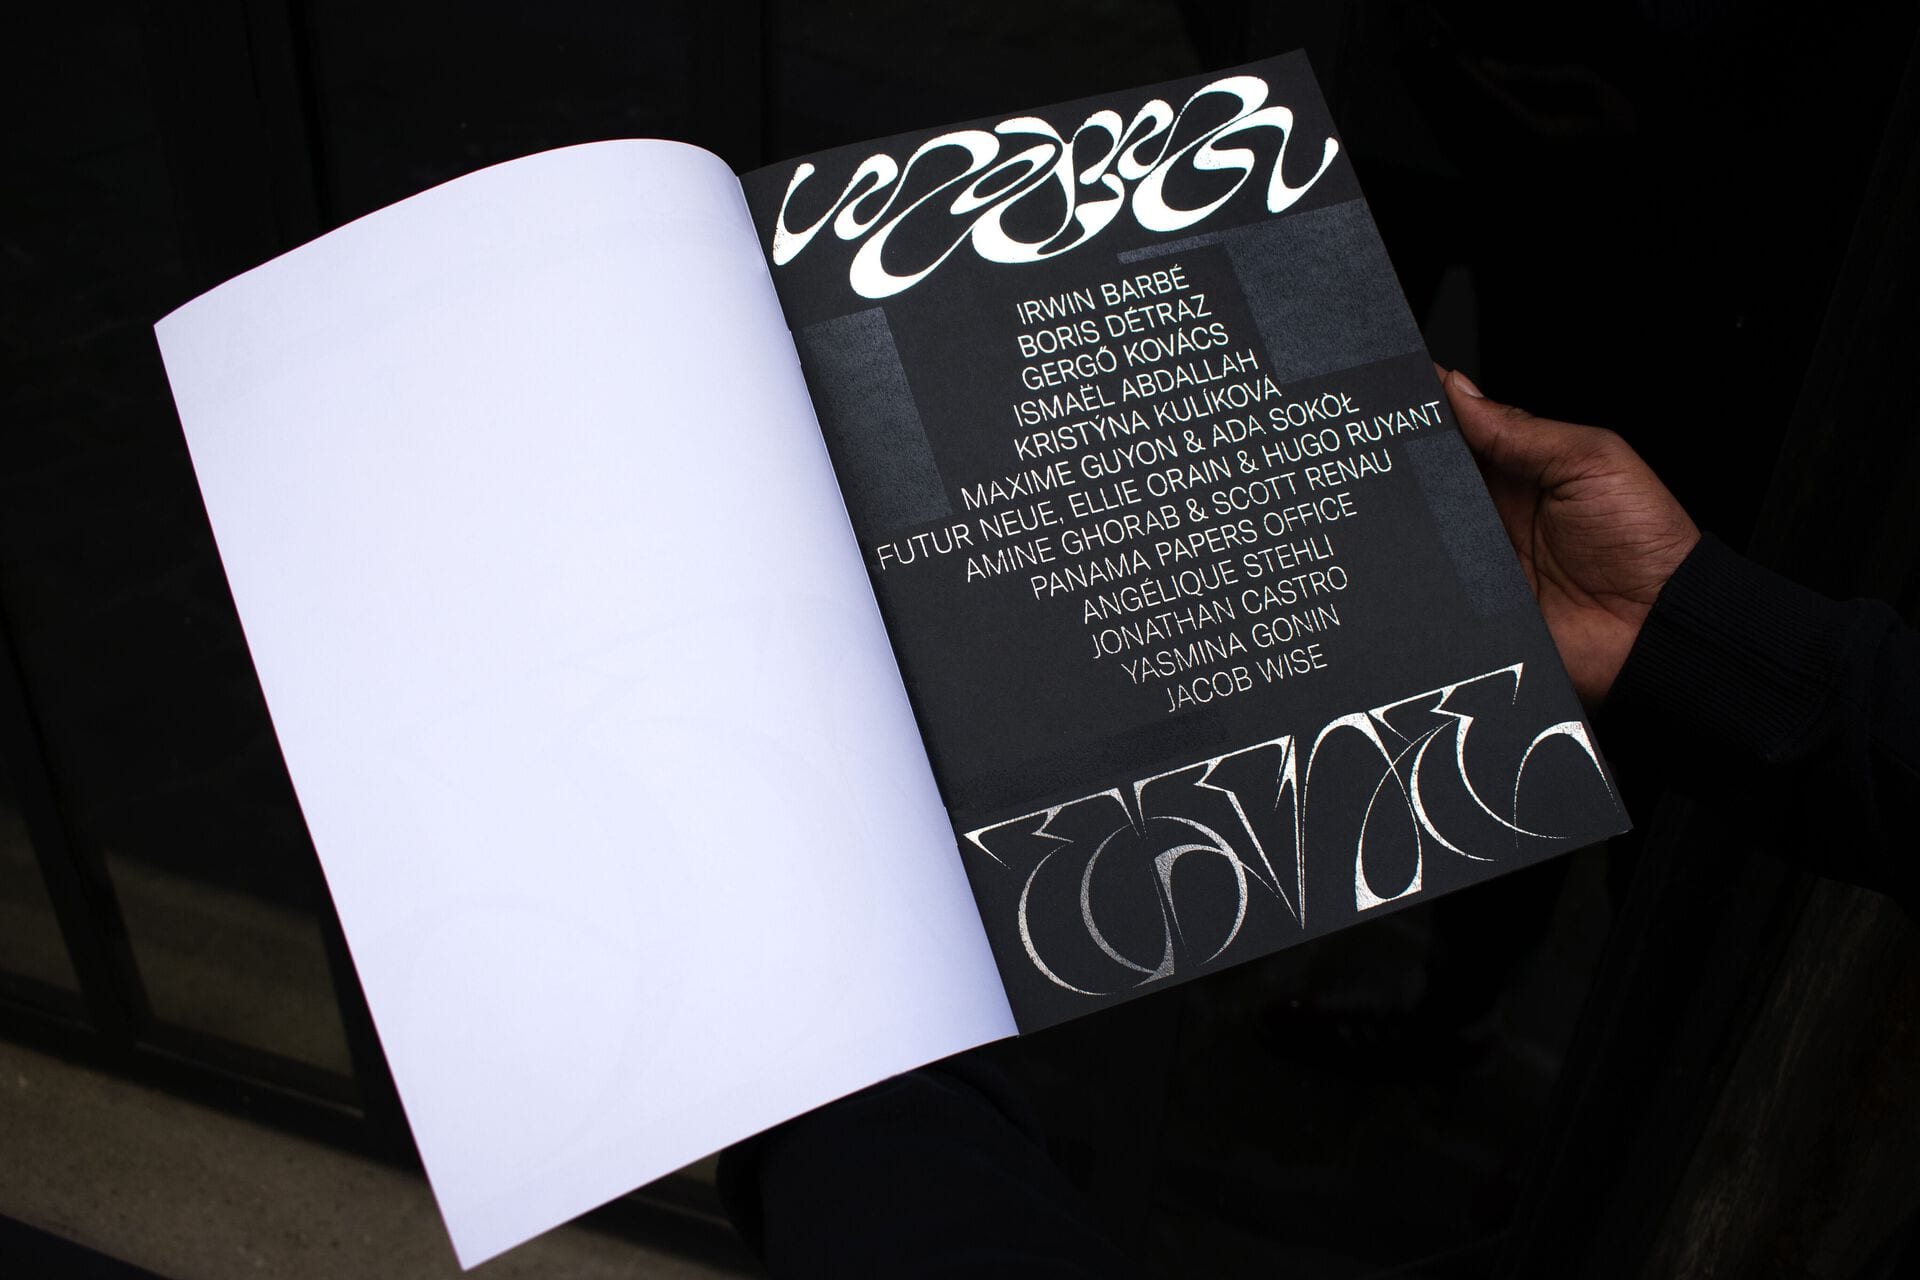 IRWIN BARBÉ
BORIS DÉTRAZ
GERGŐ KOVÁCS
ISMAËL ABDALLAH
KRISTÝNA KULÍKOVÁ
MAXIME GUYON & ADA SOKÒŁ
FUTUR NEUE, ELLIE ORAIN & HUGO RUYANT
AMINE GHORAB & SCOTT RENAU
PANAMA PAPERS OFFICE
ANGÉLIQUE STEHLI
JONATHAN CASTRO
YASMINA GONIN
JACOB WISE